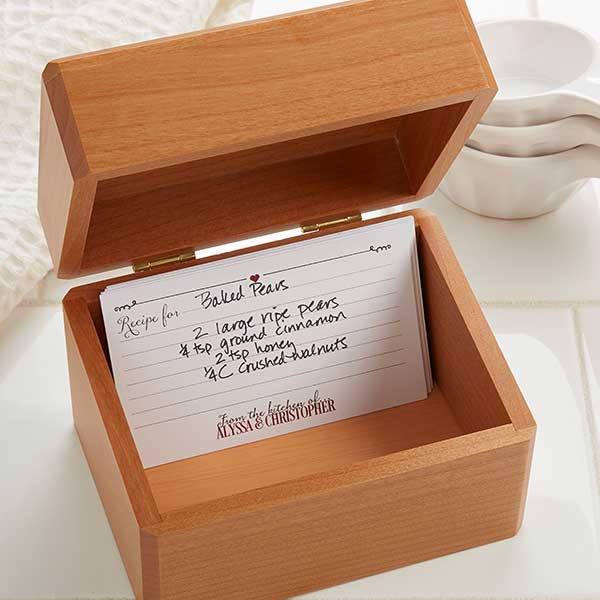 Recipe for Baked Pears
2 large ripe pears
1/4 tsp ground cinnamon
1/2 tsp honey
1/4 C crushed walnuts
From the kitchen of...
ALYSSA & CHRISTOPHER